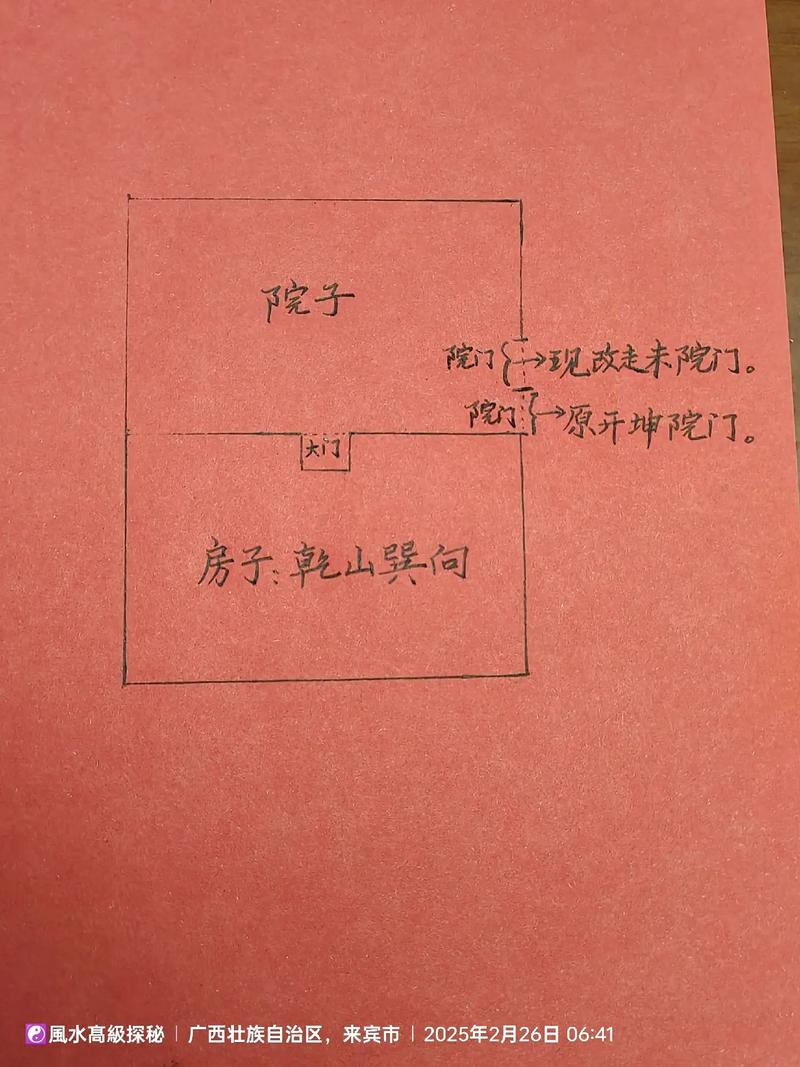 院子
院门 现改走未院门。
院门 原开坤院门。
大门
房子:乾山巽向
風水高級探秘 | 广西壮族自治区，来宾市 | 2025年2月26日 06:41